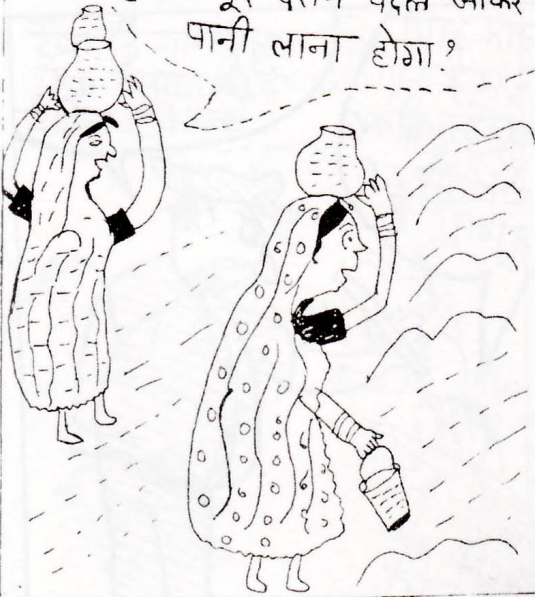 पैदल जाकर
पानी लाना होगा?